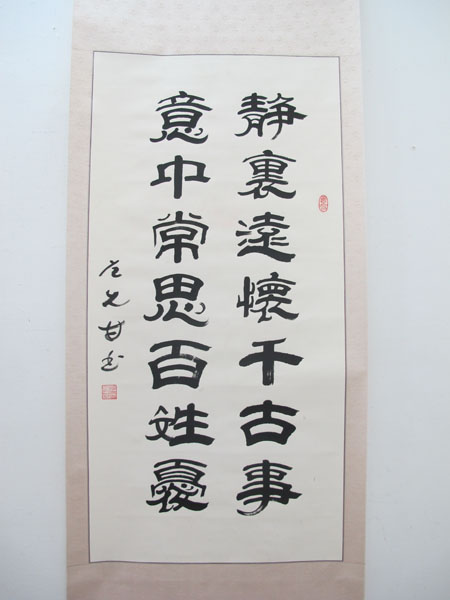 静裏遠懷千古事
意中常思百姓憂